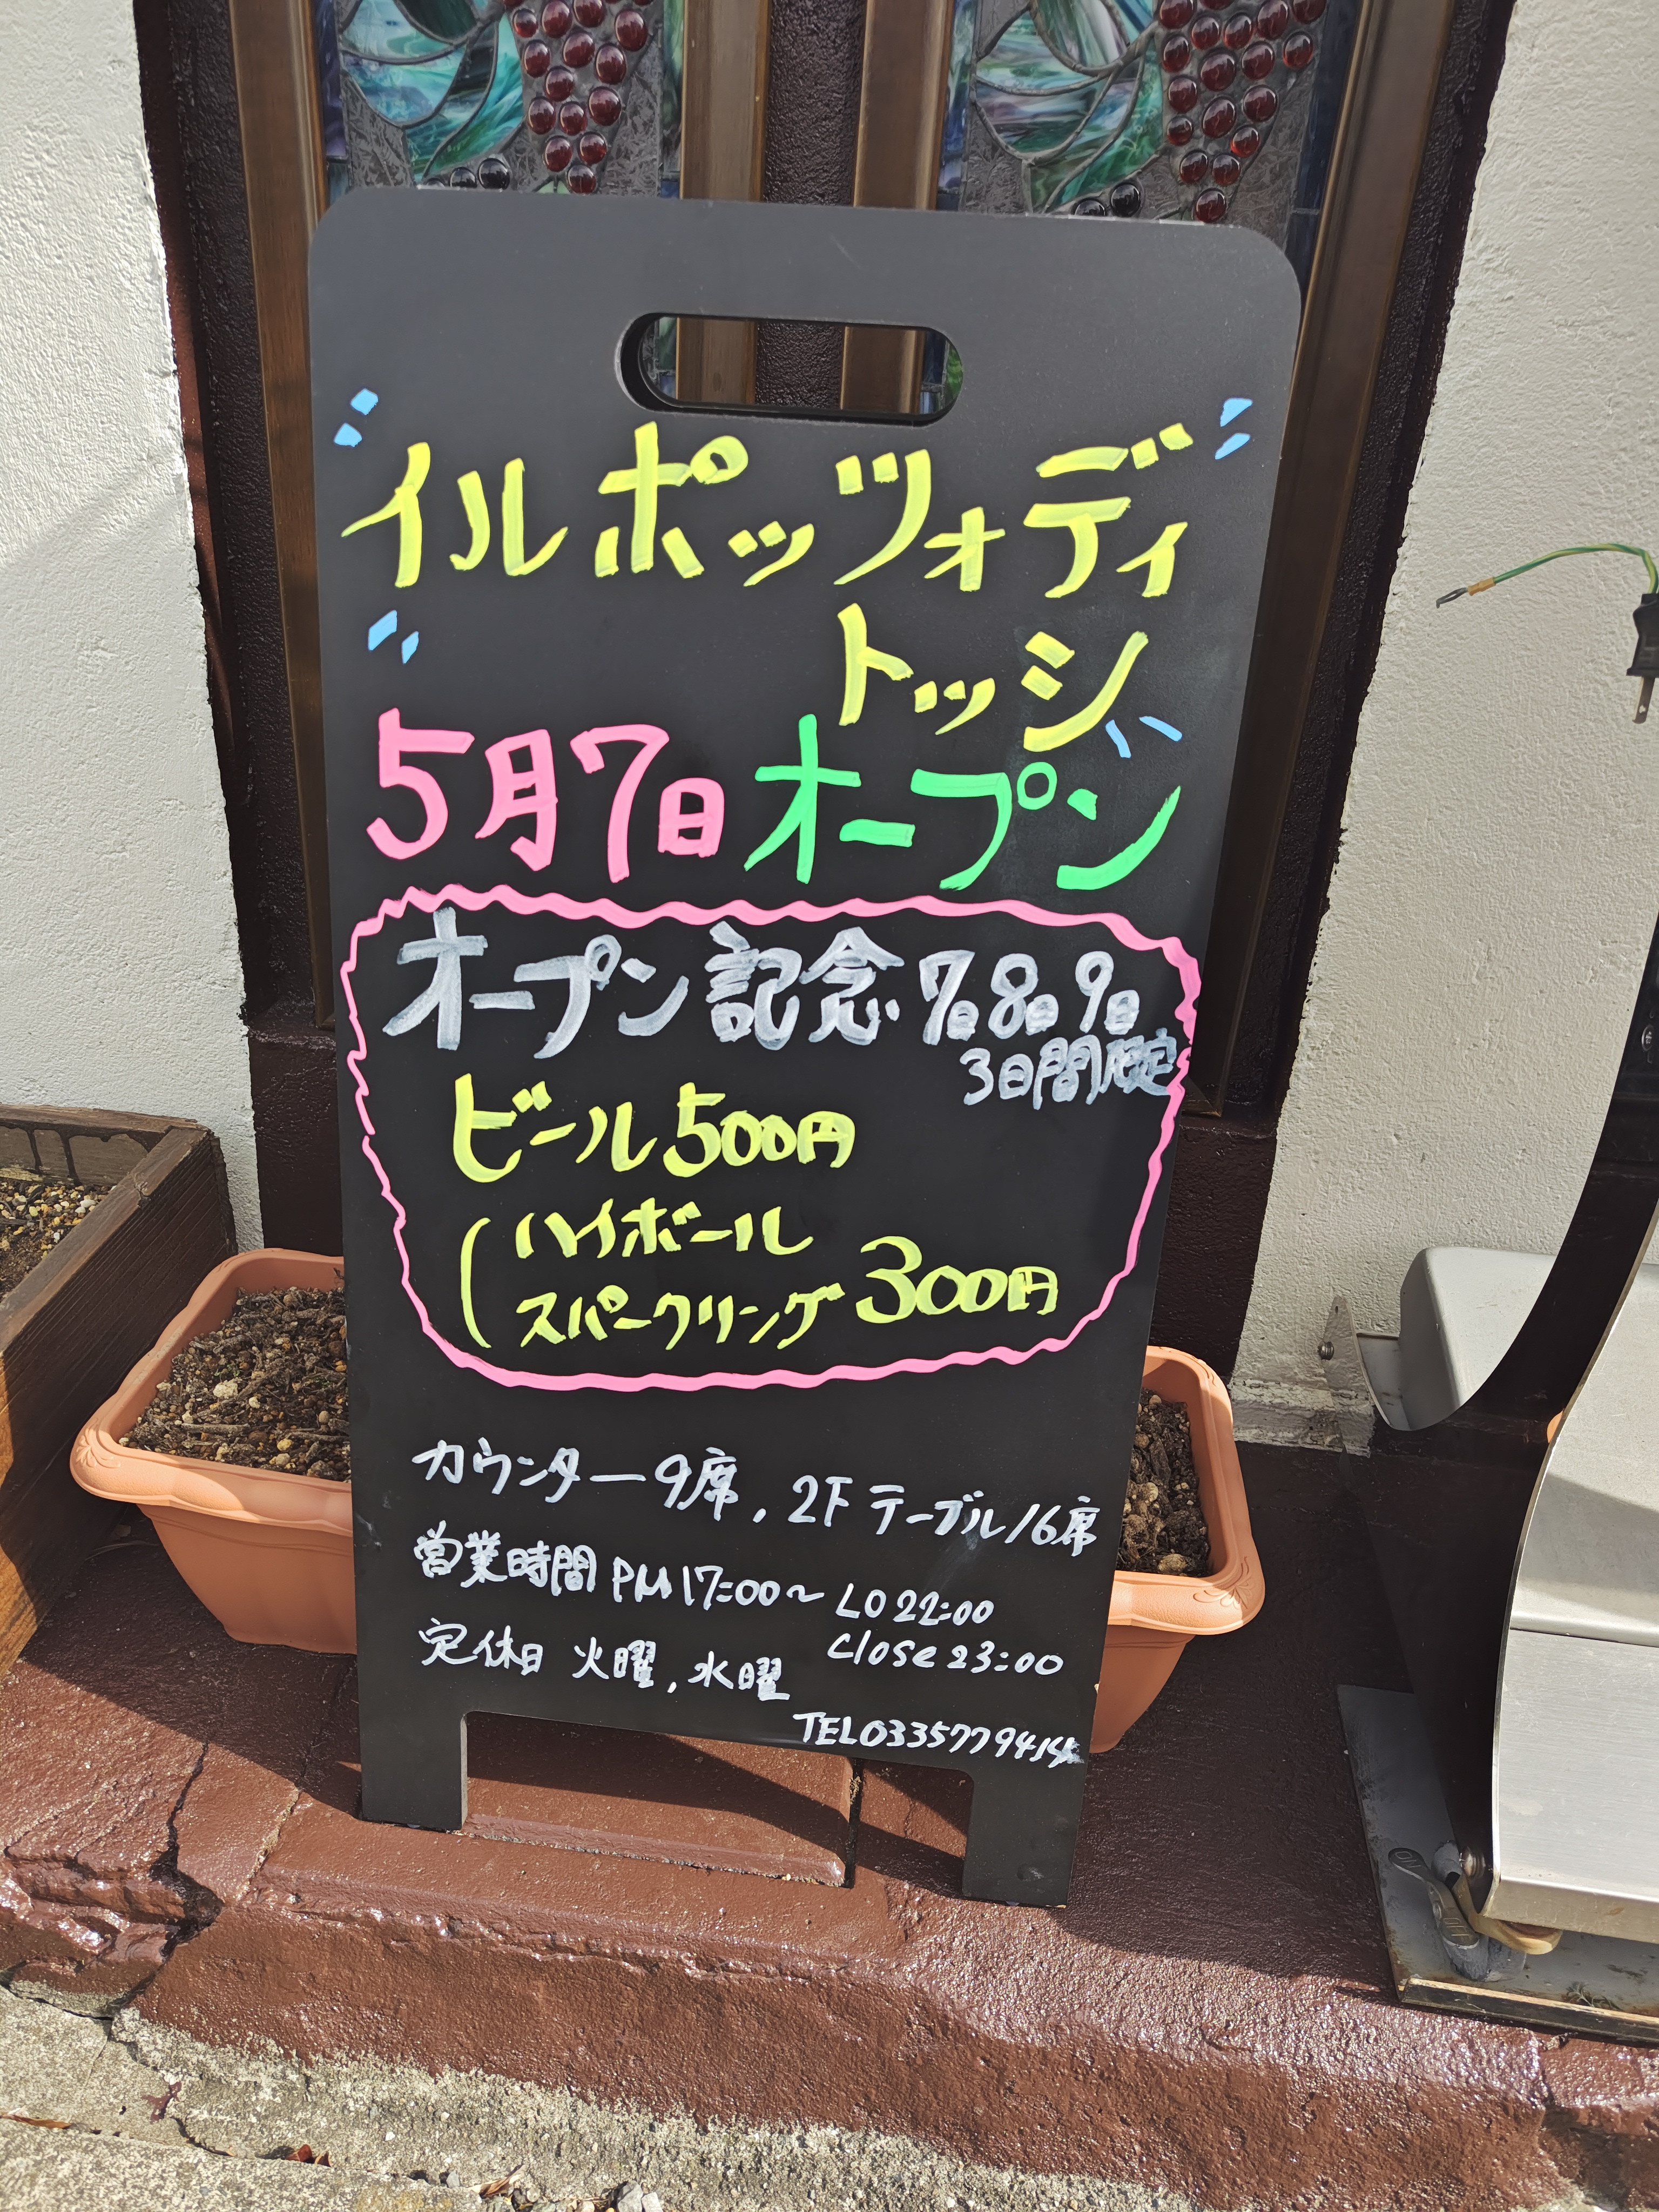 イルポッツォディ
トッシ
5月7日オープン
オープン記念 7日8日9日
3日間限定
ビール500円
ハイボール
スパークリング 300円
カウンター9席, 2Fテーブル16席
営業時間 PM17:00〜 LO 22:00
close 23:00
定休日 火曜, 水曜
TEL0335779414